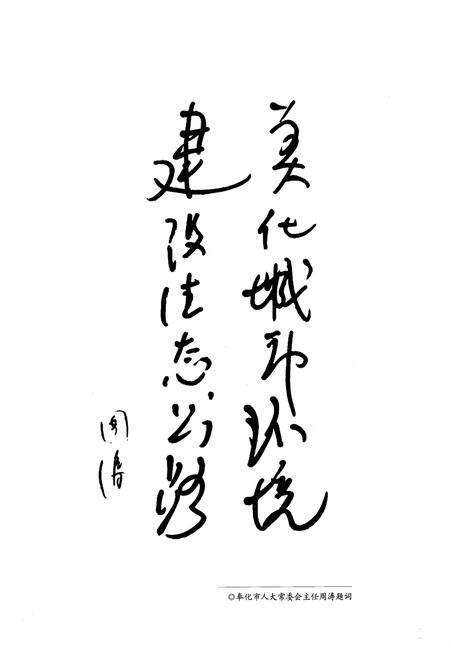 美化城市环境
建设生态公路
周涛
◎奉化市人大常委会主任周涛题词